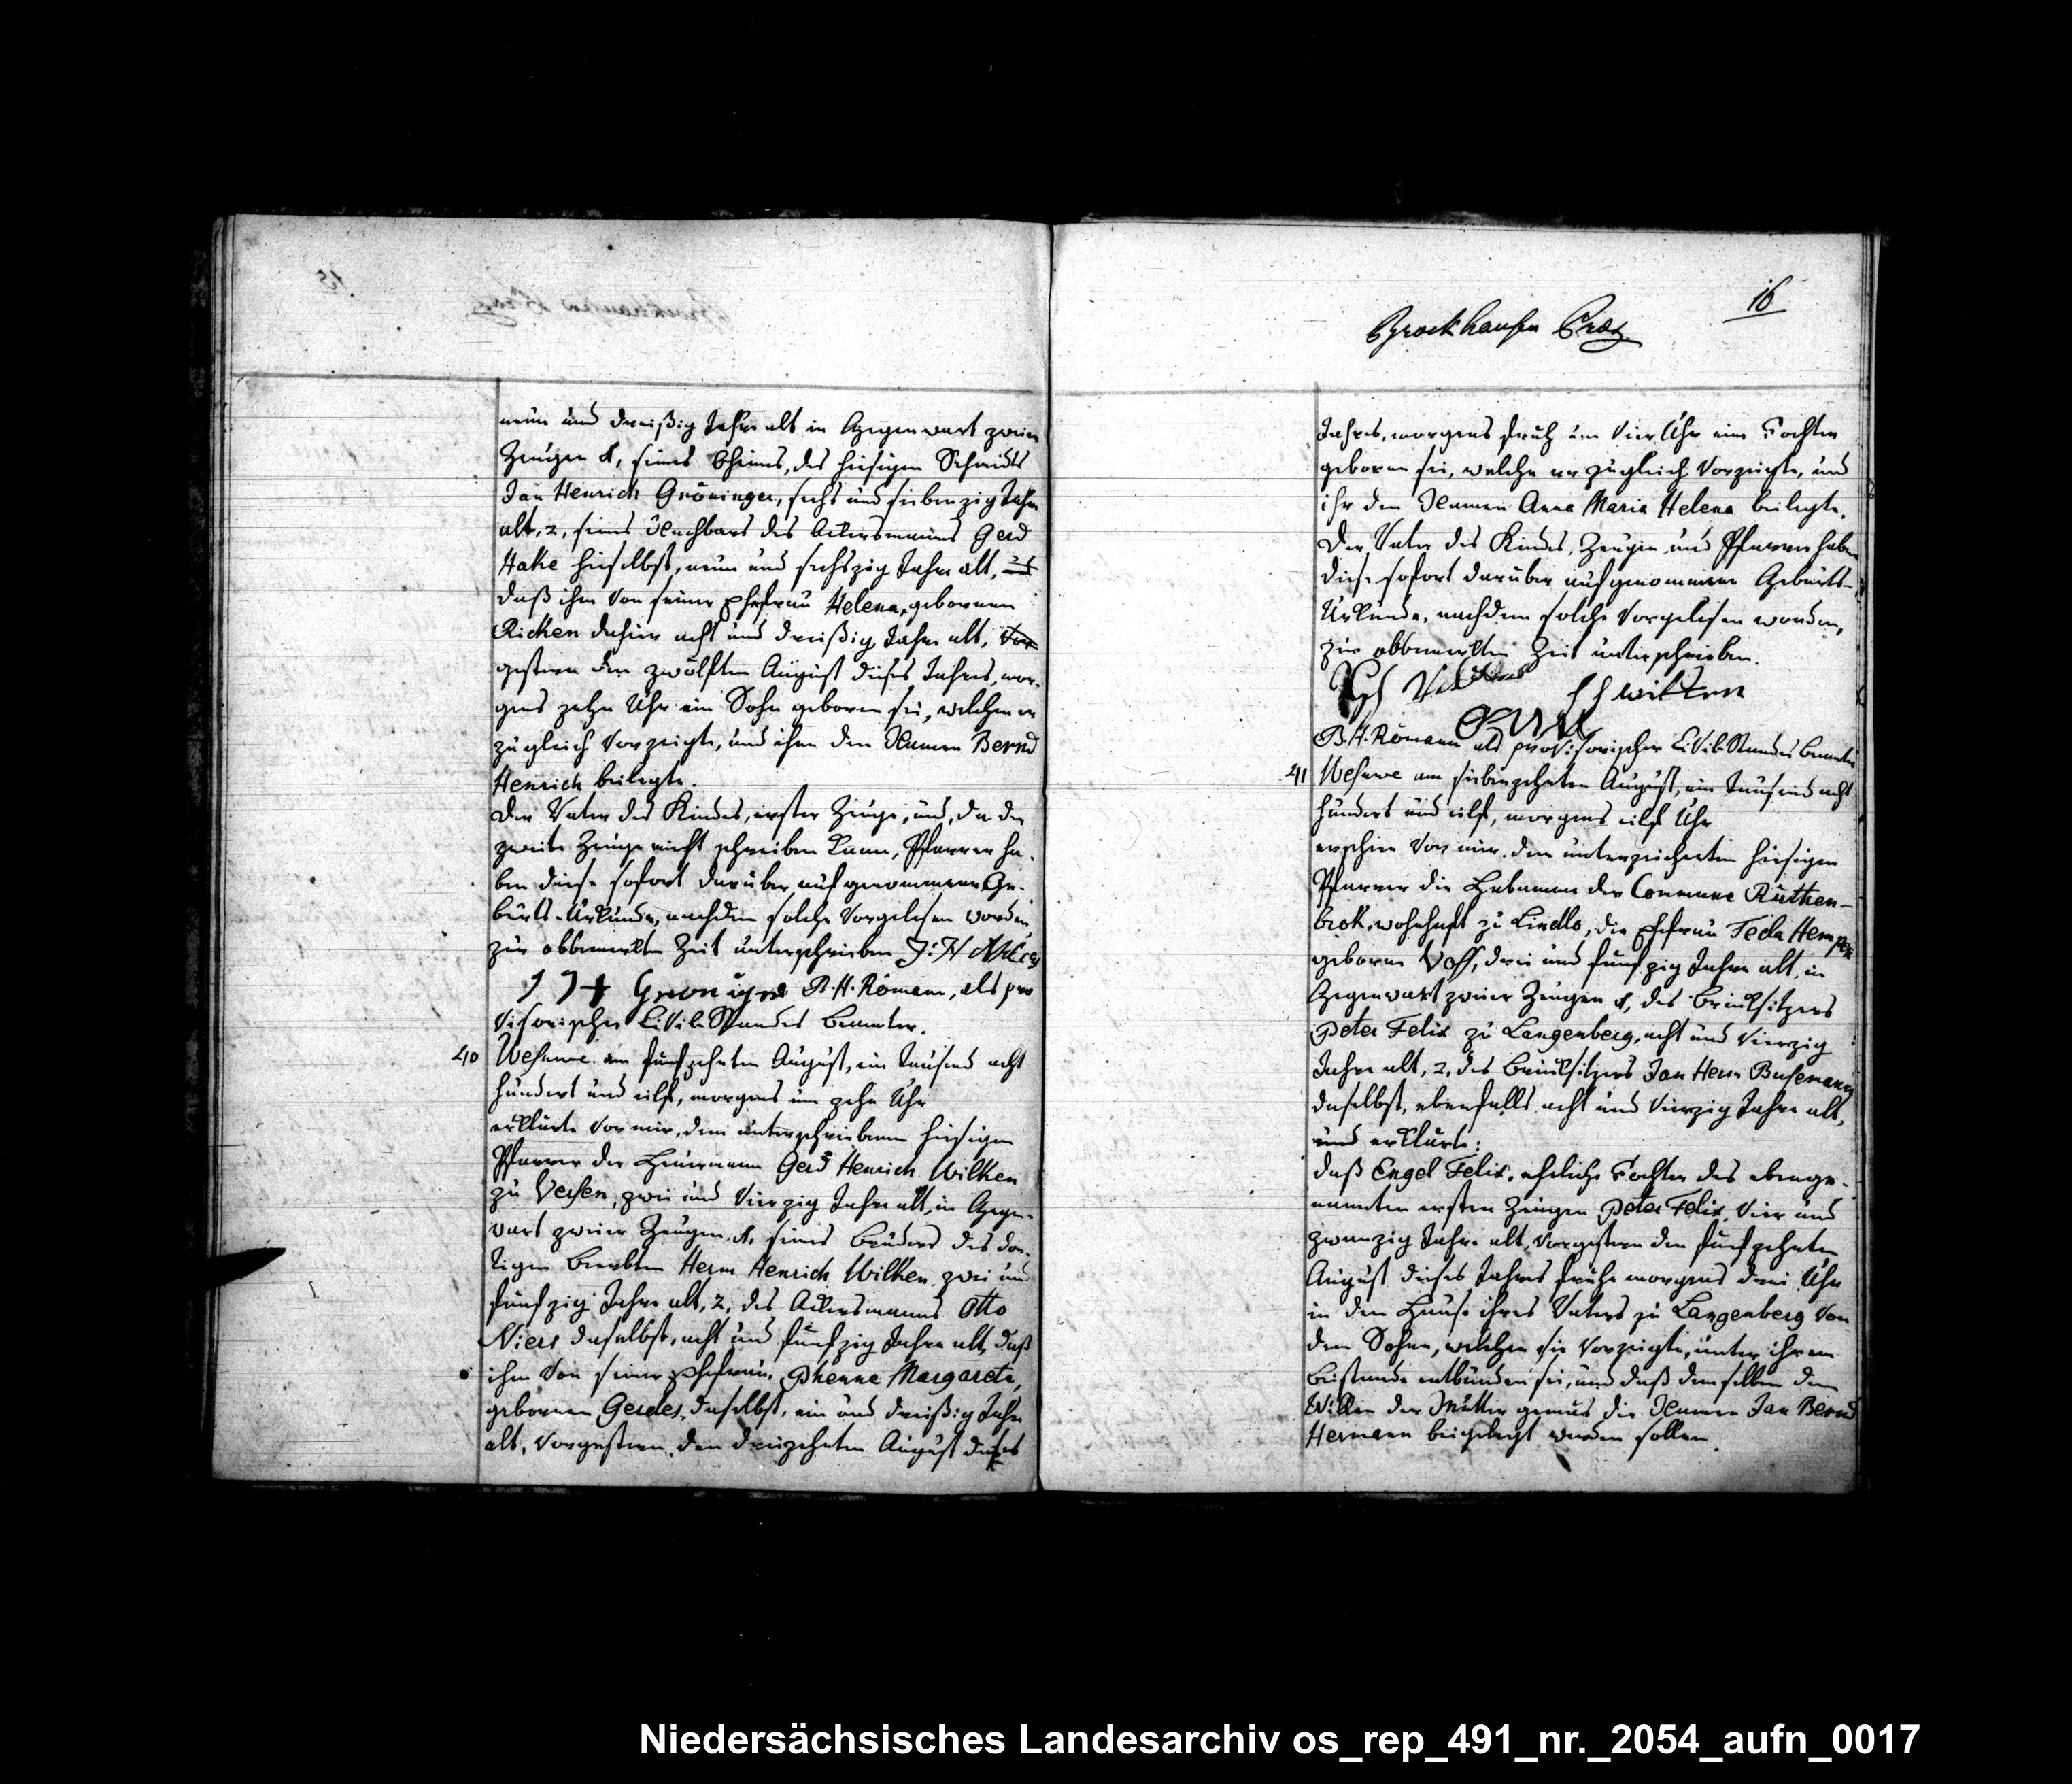 neun und dreißig Jahre alt in Gegenwart zweier
Zeugen 1, seines Oheims, des hiesigen Schmidts
Jan Henrich Gröninger, sechs und siebenzig Jahre
alt, 2, seines Nachbars des Ackersmanns Gerd
Hake hieselbst, neun und sechszig Jahre alt, und
daß ihm von seiner Ehefrau Helena, gebornen
Ricken dahier acht und dreißig Jahre alt, vor
gestern den zwölften August dieses Jahres, mor-
gens zehn Uhr ein Sohn geboren sei, welchen er
zugleich vorzeigte, und ihm den Namen Bernd
Henrich beilegte.
Der Vater des Kindes, erster Zeuge, und, da der
zweite Zeuge nicht schreiben kann, Pfarrer ha-
ben diese sofort darüber aufgenommene Ge-
burts-Urkunde, nachdem solche vorgelesen worden,
zur obbemerkten Zeit unterschrieben J: H
B. H. Römann, als pro
visorischer Civil-Standes Beamter.
40 Wesuwe am fünfzehnten August, ein Tausend acht
hundert und eilf, morgens um zehn Uhr
erklärte vor mir, dem unterschriebenen hiesigen
Pfarrer der Heuermann Gerd Henrich Wilken
zu Versen, zwei und vierzig Jahre alt, in Gegen-
wart zweier Zeugen, 1, seines Bruders des dor-
tigen Beerbten Herm Henrich Wilken, zwei und
fünfzig Jahre alt, 2, des Ackersmanns Otto
Niers daselbst, acht und fünfzig Jahre alt, daß
ihm von seiner Ehefrau, Phenne Margarete,
gebornen Gerdes, daselbst, ein und dreißig Jahre
alt, vorgestern, den dreizehnten August dieses
16
Brockhausen Praes
Jahres, morgens früh um vier Uhr eine Tochter
geboren sei, welche er zugleich vorzeigte, und
ihr den Namen Anna Maria Helena beilegte.
Der Vater des Kindes, Zeugen und Pfarrer haben
diese sofort darüber aufgenommene Geburts-
Urkunde, nachdem solche vorgelesen worden,
zur obbemerkten Zeit unterschrieben.
B. H. Römann als provisorischer Civil-Standes Beamter
41 Wesuwe am siebenzehnten August, ein Tausend acht
hundert und eilf, morgens eilf Uhr
erschien vor mir, dem unterzeichneten hiesigen
Pfarrer die Hebamme der Commune Rüthen-
brok, wohnhaft zu Lindlo, die Ehefrau Teda Hempen
geborne Voss, drei und fünfzig Jahre alt, in
Gegenwart zweier Zeugen 1, des Brinksitzers
Peter Felix zu Langenberg, acht und vierzig
Jahre alt, 2, des Brinksitzers Jan Herm Busemann
daselbst, ebenfalls acht und vierzig Jahre alt,
und erklärte:
daß Engel Felix, eheliche Tochter des obenge-
nannten ersten Zeugen Peter Felix, vier und
zwanzig Jahre alt, vorgestern den fünfzehnten
August dieses Jahres frühe morgens drei Uhr
in dem Hause ihres Vaters zu Langenberg von
dem Sohne, welchen sie vorzeigte, unter ihrem
Beistande entbunden sei, und daß demselben dem
Willen der Mutter gemäs die Namen Jan Bernd
Hermann beigelegt werden sollen.
Niedersächsisches Landesarchiv os_rep_491_nr._2054_aufn_0017